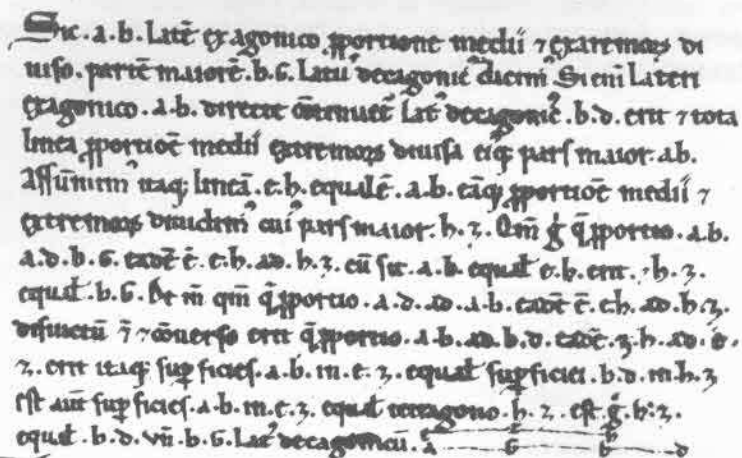 Sic .a.b. Latē exagonico ꝓportione medii ⁊ extremoꝝ di
uiso. partē maiorē .b.G. Latuſ decagonicū dicemꝰ Si eni Lateri
exagonico .a.b. directe ↄtinuet̄ Latꝰ decagonicū .b.d. erit ⁊ tota
linea ꝓportiōe medii extremoꝝ diuiſa eiꝰqꝫ parſ maior .ab.
Aſſumimꝰ itaqꝫ lineā .e.h. equalē .a.b. eāqꝫ ꝓportiōe medii ⁊
extremoꝝ diuidimꝰ cuiꝰ parſ maior .h.z. Qm̄ ġ q̄ ꝓportio .a.b.
a.d.b.G. eadē ē .e.h. ad .h.z. cū ſit .a.b. equal̄ e.h. erit ⁊ h.z.
equal̄ .b.G. At m̄ qm̄ q̄ ꝓportio .a.d. ad .a.b. eadē ē .e.h. ad h.z.
diſiunctū ⁊ ↄuerſo erit q̄ ꝓportio .a.b. ad .b.d. eadē .z.h. ad .e.
z. erit itaqꝫ ſuꝑficieſ .a.b. in .e.z. equal̄ ſuꝑficiei .b.d. in h.z
eſt aūt ſuꝑficieſ .a.b. in .e.z. equal̄ tetragono .h.z. eſt ġ .h.z.
equal̄ .b.d. vn̄ .b.G. Latꝰ decagonicū. a G b d